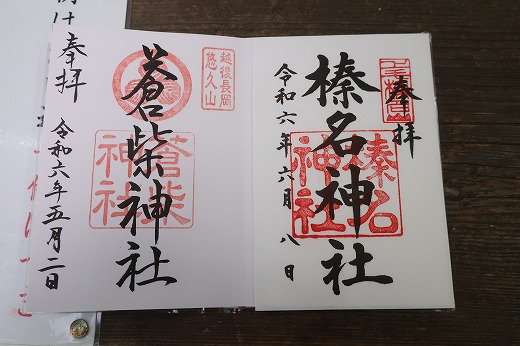 奉拝
榛名神社
榛名神社
令和六年六月八日
越後長岡
悠久山
蒼柴神社
蒼柴神社
奉拝
令和六年五月二日